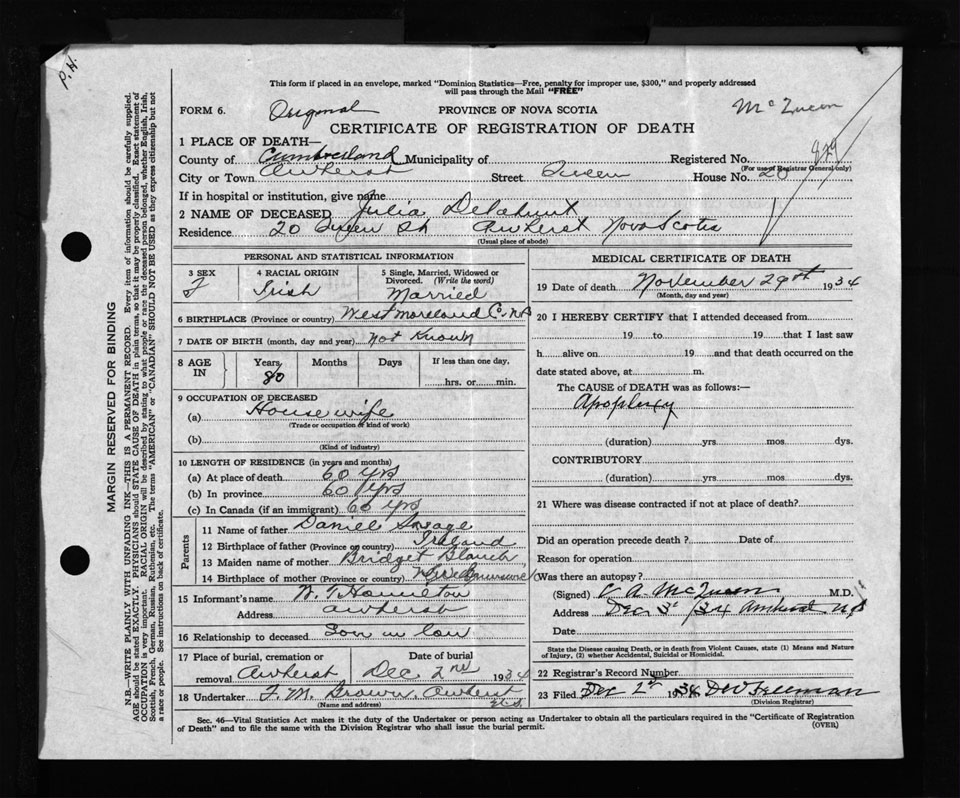 P.H.
This form if placed in an envelope, marked "Dominion Statistics—Free, penalty for improper use, $300," and properly addressed
will pass through the Mail "FREE"
FORM 6. Original PROVINCE OF NOVA SCOTIA McQueen
CERTIFICATE OF REGISTRATION OF DEATH
1 PLACE OF DEATH—
County of Cumberland Municipality of Registered No.
(For use of Registrar General only)
City or Town Amherst Street Queen House No. 20
If in hospital or institution, give name
2 NAME OF DECEASED Julia Delahunt
Residence 20 Queen St Amherst Nova Scotia
(Usual place of abode)
PERSONAL AND STATISTICAL INFORMATION
3 SEX F
4 RACIAL ORIGIN Irish
5 Single, Married, Widowed or Divorced. (Write the word) Married
6 BIRTHPLACE (Province or country) Westmoreland C. NB
7 DATE OF BIRTH (month, day and year) Not Known
8 AGE IN Years 80 Months Days If less than one day, hrs. or min.
9 OCCUPATION OF DECEASED
(a) House wife
(Trade or occupation or kind of work)
(b)
(Kind of industry)
10 LENGTH OF RESIDENCE (in years and months)
(a) At place of death 60 yrs
(b) In province 60 yrs
(c) In Canada (if an immigrant) 60 yrs
Parents
11 Name of father Daniel Savage
12 Birthplace of father (Province or country) Ireland
13 Maiden name of mother Bridget
14 Birthplace of mother (Province or country) New Brunswick
15 Informant's name W. T. Hamilton
Address Amherst
16 Relationship to deceased Son in law
17 Place of burial, cremation or removal Amherst Date of burial Dec 2nd 1934
18 Undertaker F. M. Brown. Amherst
(Name and address)
MEDICAL CERTIFICATE OF DEATH
19 Date of death November 29th 1934
(Month, day and year)
20 I HEREBY CERTIFY that I attended deceased from
19 to 19 that I last saw
h alive on 19 and that death occurred on the
date stated above, at m.
The CAUSE of DEATH was as follows:—
Apoplexy
(duration) yrs mos dys.
CONTRIBUTORY
(duration) yrs. mos. dys.
21 Where was disease contracted if not at place of death?
Did an operation precede death? Date of
Reason for operation
Was there an autopsy?
(Signed) C. A. McQueen M.D.
Address Dec 3d /34 Amherst NS
Date
State the Disease Causing Death, or in death from Violent Causes, state (1) Means and Nature
of Injury, (2) whether Accidental, Suicidal or Homicidal.
22 Registrar's Record Number
23 Filed Dec 2nd 1934 DW Freeman
(Division Registrar)
Sec. 46—Vital Statistics Act makes it the duty of the Undertaker or person acting as Undertaker to obtain all the particulars required in the "Certificate of Registration
of Death" and to file the same with the Division Registrar who shall issue the burial permit. (OVER)
MARGIN RESERVED FOR BINDING
N.B.—WRITE PLAINLY WITH UNFADING INK—THIS IS A PERMANENT RECORD. Every item of information should be carefully supplied.
AGE should be stated EXACTLY. PHYSICIANS should STATE CAUSE OF DEATH in plain terms, so that it may be properly classified. Exact statement of
OCCUPATION is very important. RACIAL ORIGIN will be described by stating to what people or race the deceased person belonged, whether English, Irish,
Scottish, French, German, Russian, Ruthenian, etc. The terms "AMERICAN" or "CANADIAN" SHOULD NOT BE USED as they express citizenship but not
a race or people. See instructions on back of certificate.